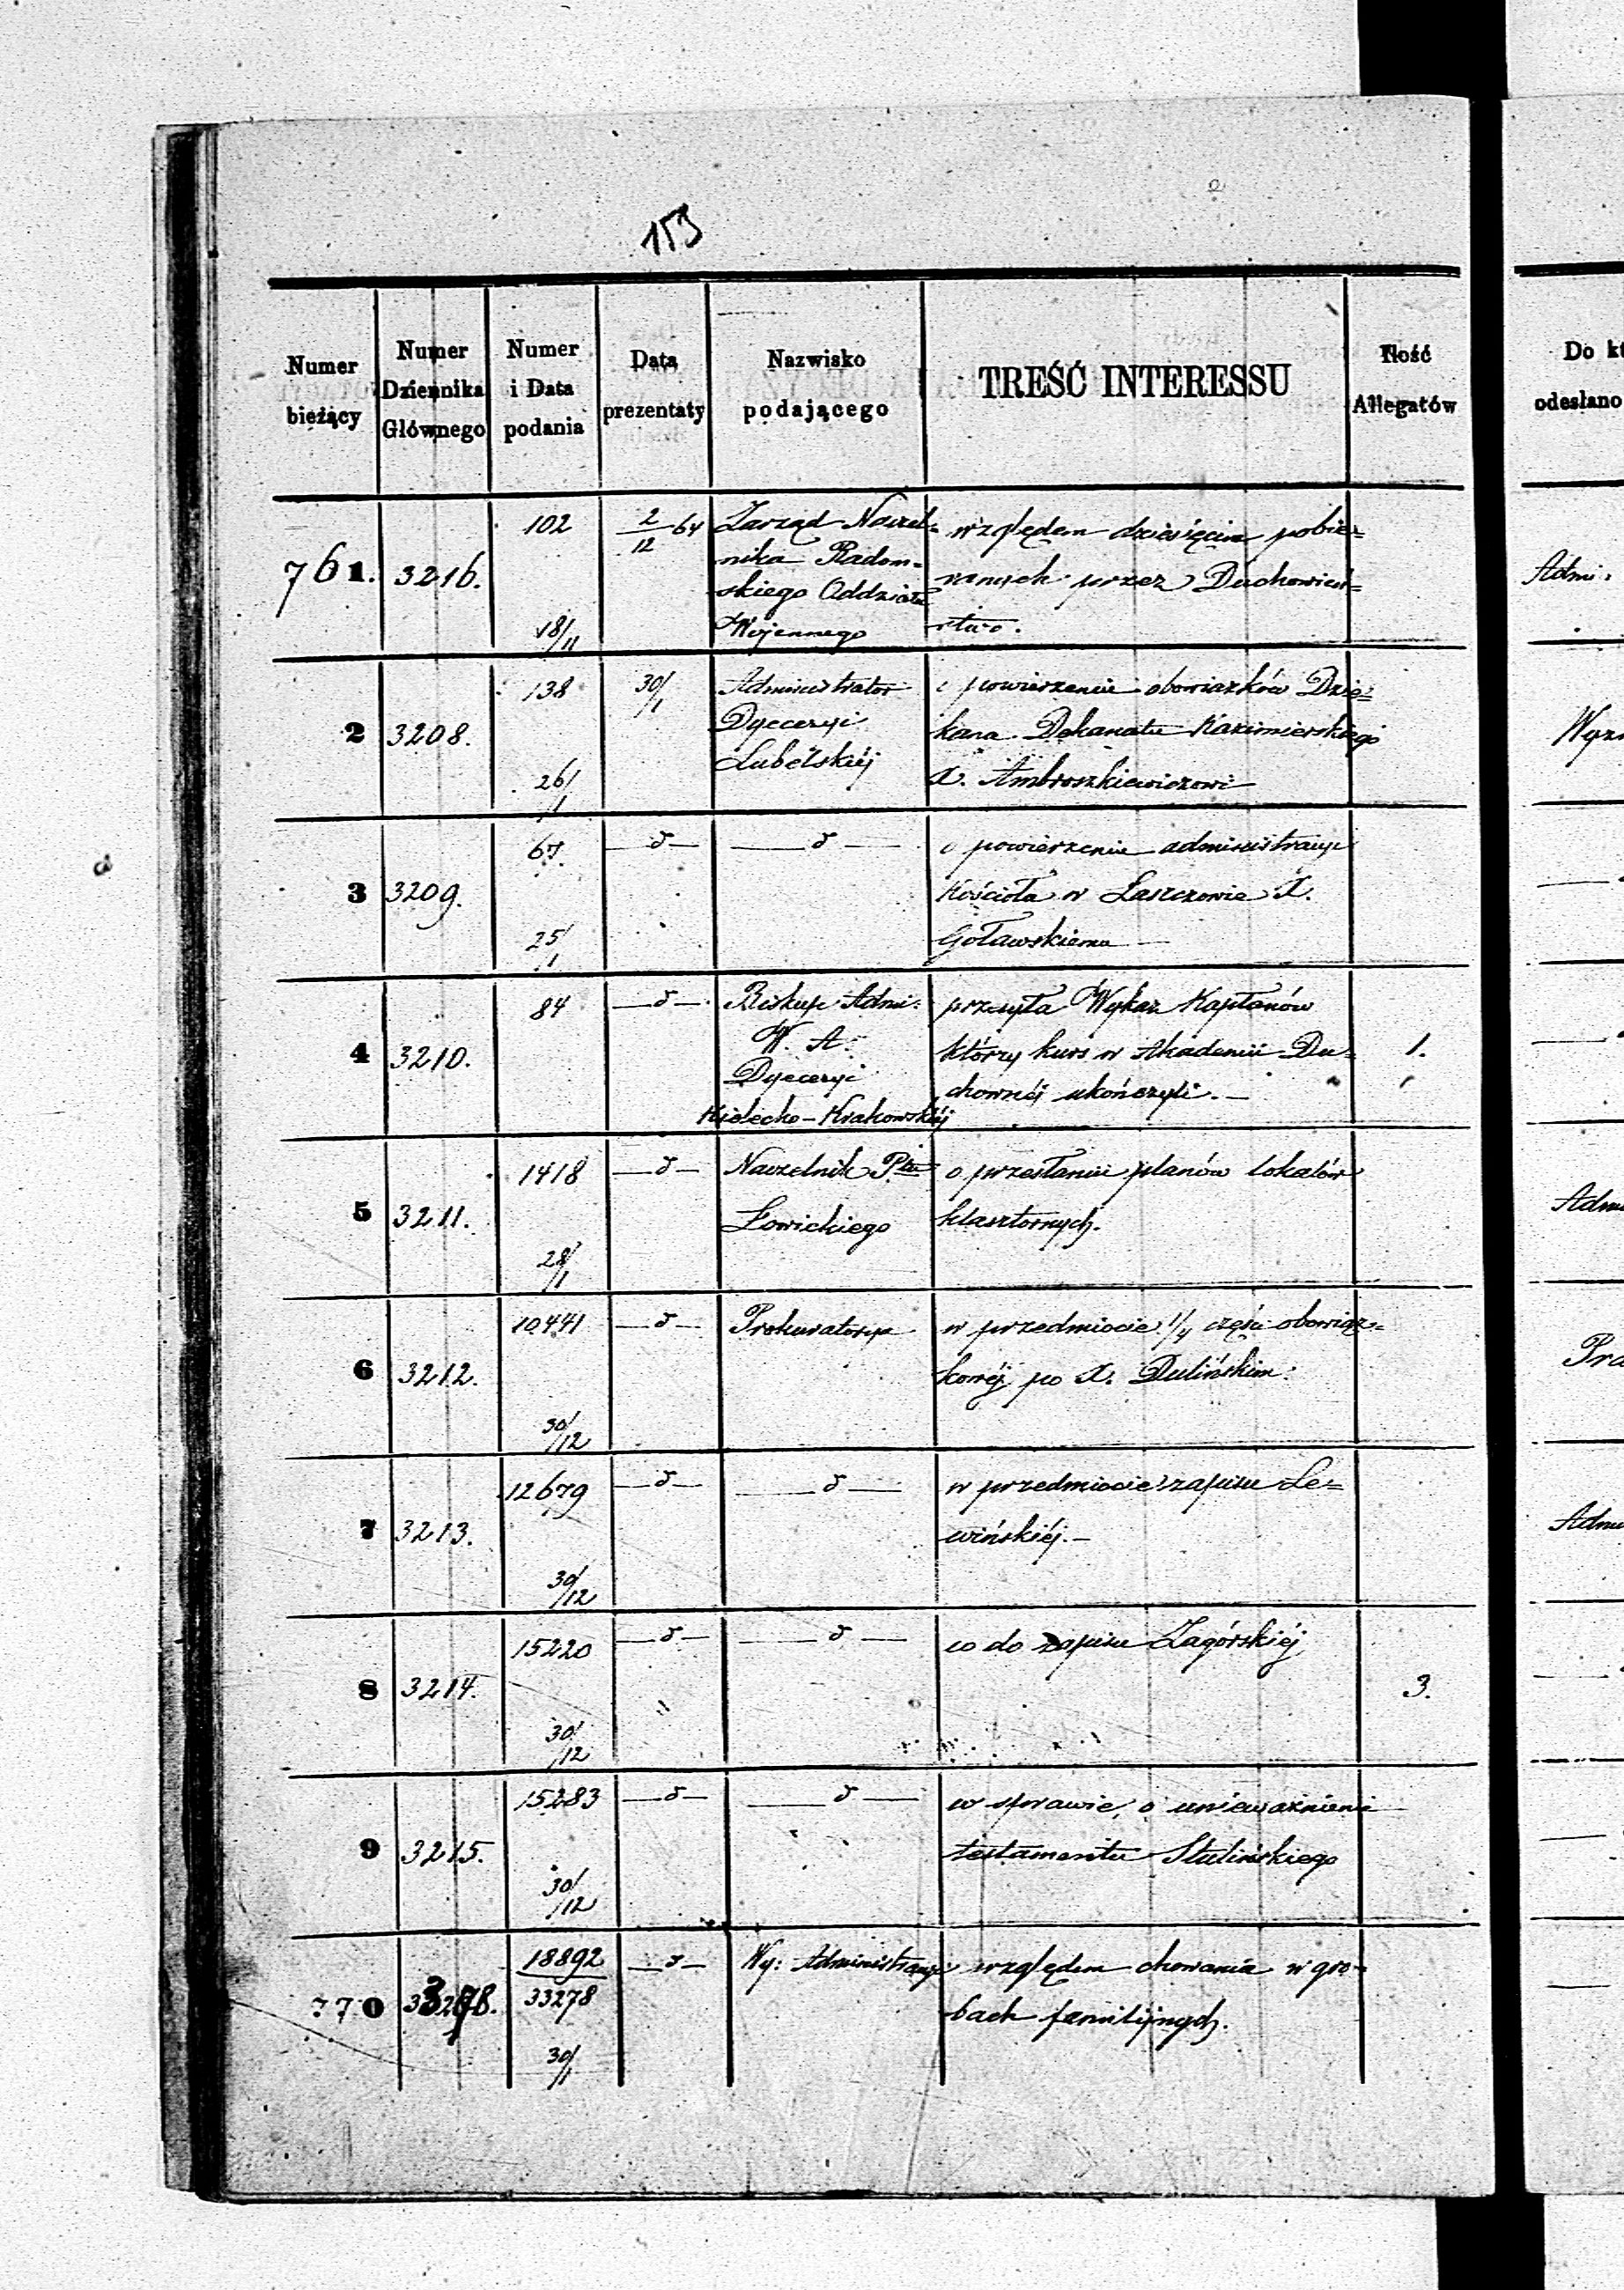 153
Numer bieżący | Numer Dziennika Głównego | Numer i Data podania | Data prezentaty | Nazwisko podającego | TREŚĆ INTERESSU | Ilość Allegatów | Do kt odesłano
761. 3216. 102 2/12 64 Zarząd Naczel= względem dziesięcin pobie=
nika Radom= ranych przez Duchowień= Admi:
skiego Oddziału
18/11 Wojennego stwo.
138 30/1 Administrator o powierzenie obowiązków Dzie=
2 3208. Dyecezyi kana Dekanatu Kazimierskiego
26/1 Lubelskiéj X. Ambroszkiewiczowi
67. —d— —d— o powierzenie administracyi
3 3209. Kościoła w Łaszczowie X.
25/1 Goławskiemu —
84 —d— Biskup Admi: przesyła Wykaz Kapłanów
4 3210. W. A. którzy kurs w Akademii Du= 1.
Dyecezyi chownéj ukończyli. —
Kielecko-Krakowskiéj
1418 —d— Naczelnik Ptu o przesłanie planów lokalów
5 3211. Łowickiego klasztornych.
28/1
10441 —d— Prokuratorya w przedmiocie 1/4 części obowiąz=
6 3212. kowéj po X. Dulińskim.
30/12
12679 —d— —d— w przedmiocie zapisu Le=
7 3213. wińskiéj. —
30/12
15220 —d— —d— co do zapisu Zagórskiéj
8 3214. 3.
30/12
15283 —d— —d— w sprawie o unieważnienie
9 3215. testamentu Stulińskiego
30/12
18892 —d— Wy: Administracyi względem chowania w gro=
770 33278 bach familijnych.
30/1